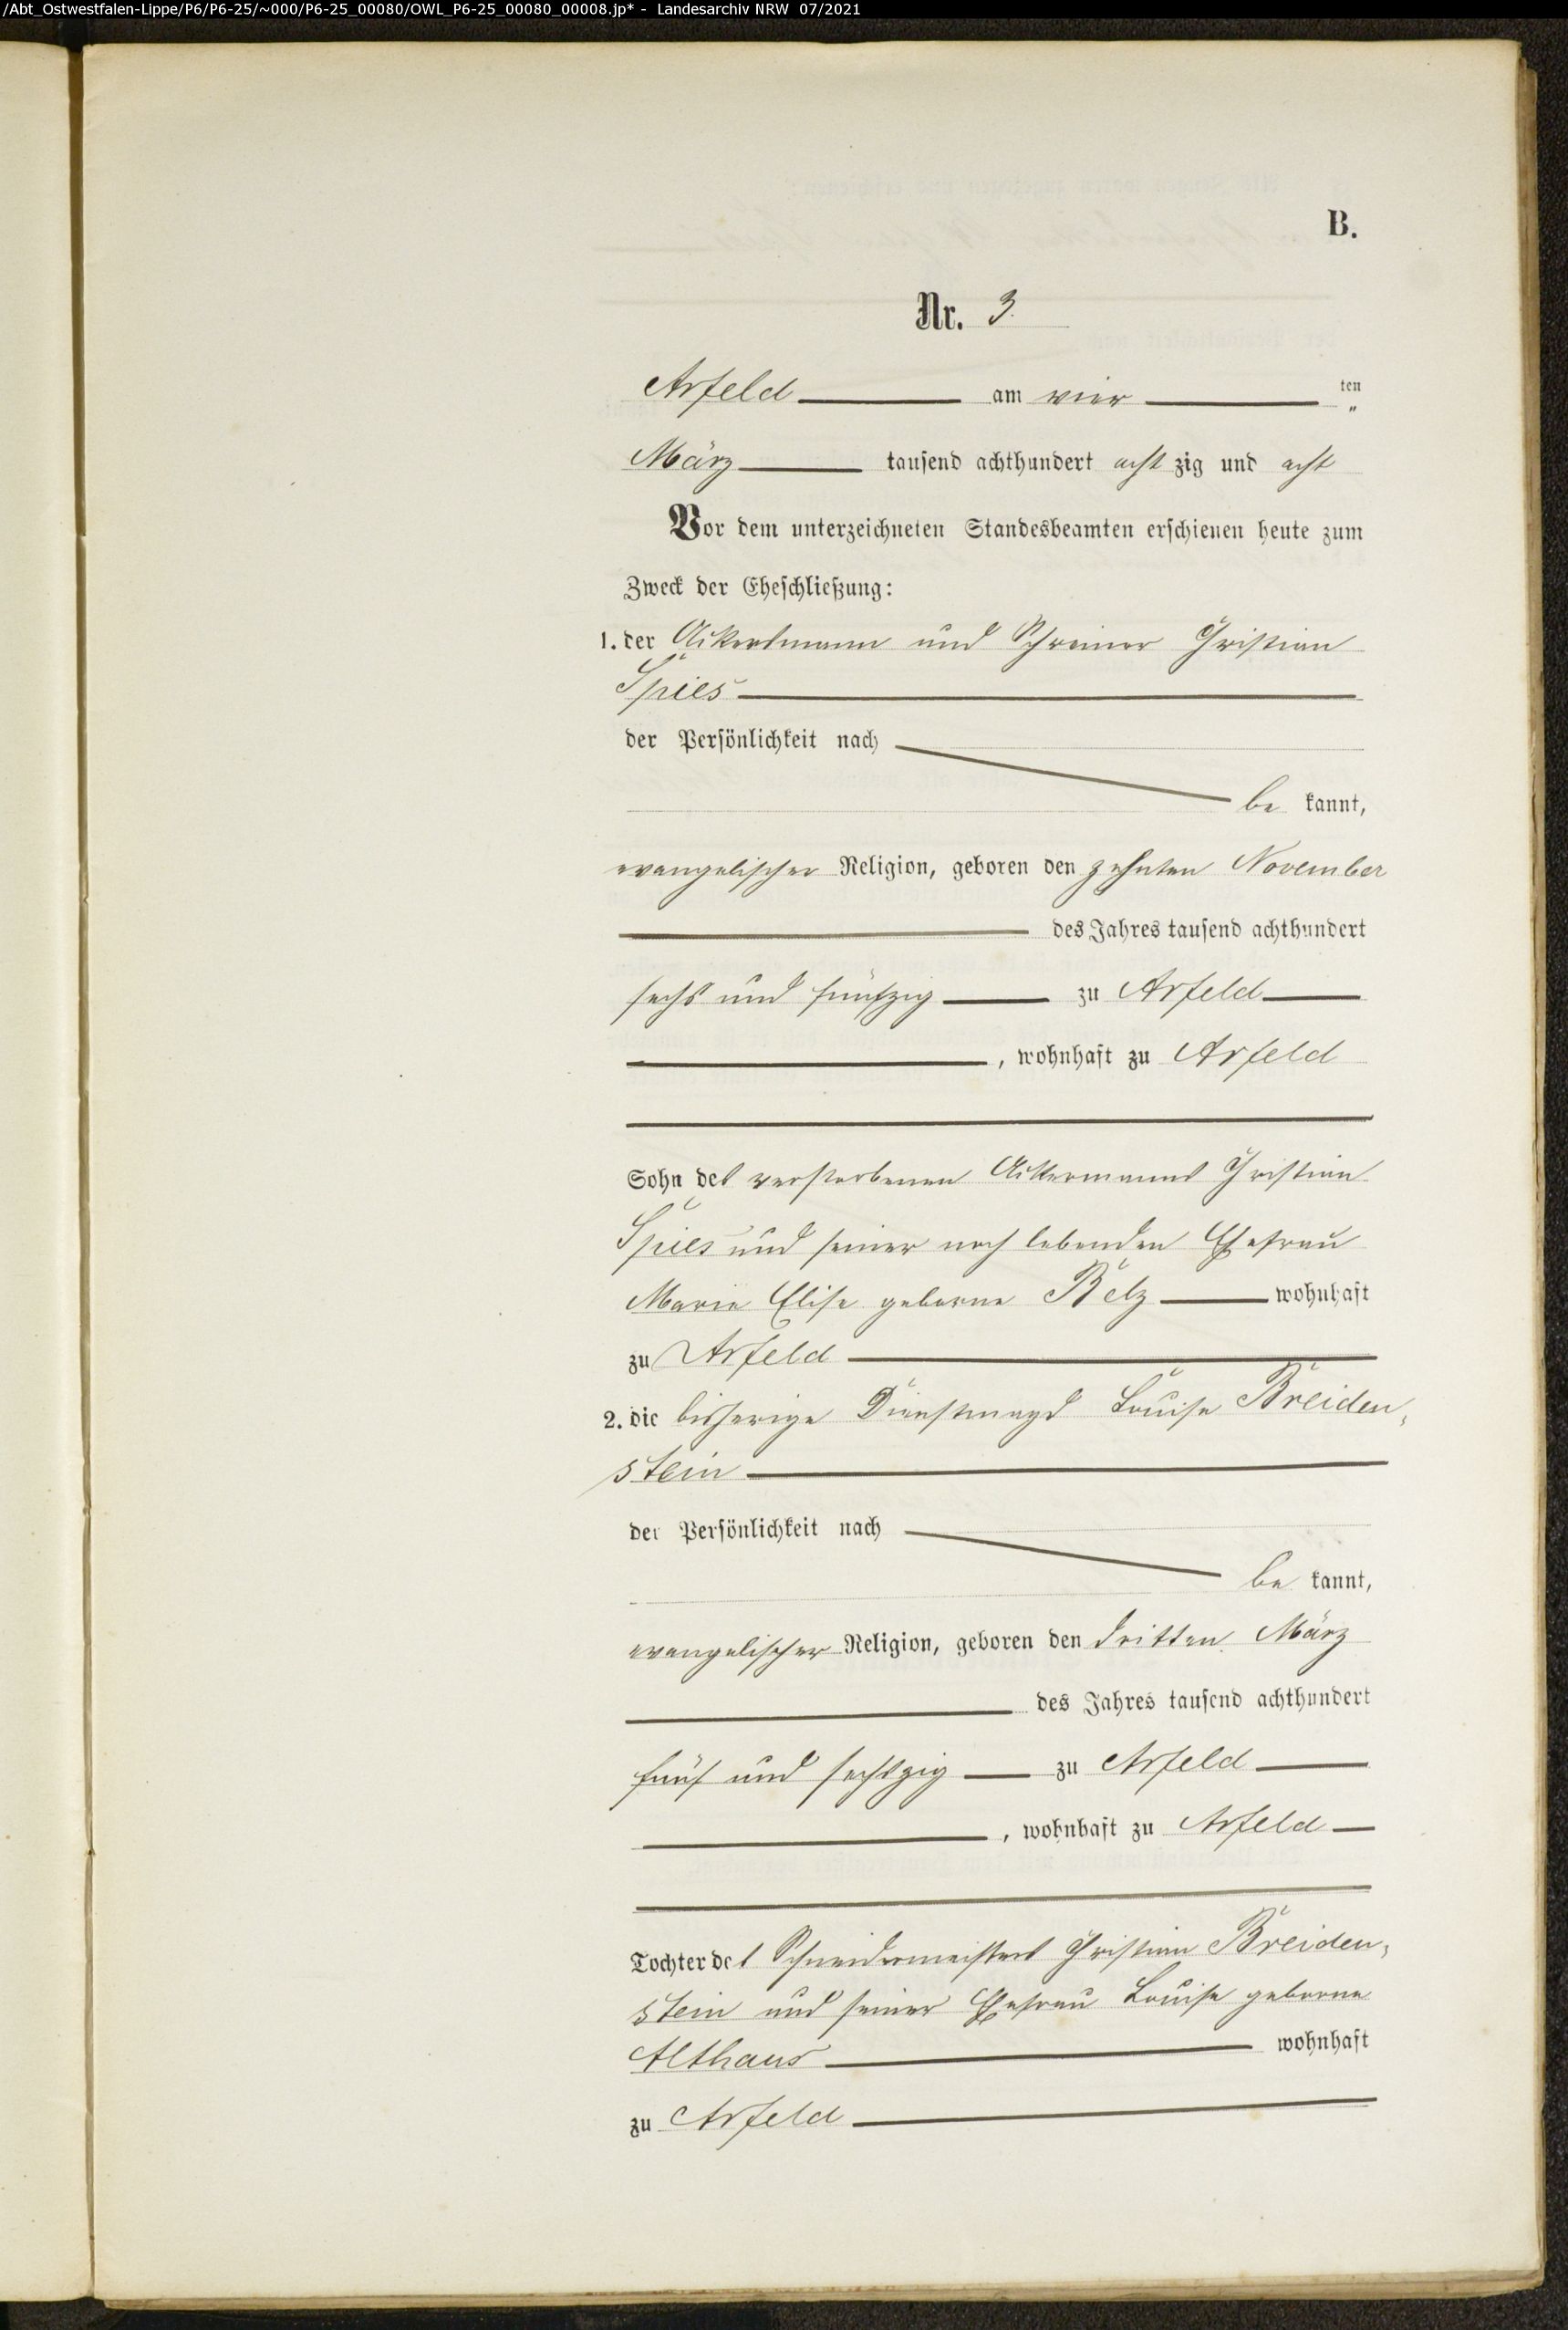 /Abt_Ostwestfalen-Lippe/P6/P6-25/~000/P6-25_00080/OWL_P6-25_00080_00008.jp* - Landesarchiv NRW 07/2021
B.
Nr. 3.
Arfeld am vier ten
März tausend achthundert acht zig und acht
Vor dem unterzeichneten Standesbeamten erschienen heute zum
Zweck der Eheschließung:
1. der Ackersmann und Schreiner Christian
Spies
der Persönlichkeit nach
be kannt,
evangelischer Religion, geboren den zehnten November
des Jahres tausend achthundert
sechs und fünfzig zu Arfeld
, wohnhaft zu Arfeld
Sohn des verstorbenen Ackermanns Christian
Spies und seiner noch lebenden Ehefrau
Marie Elise geborne Belz wohnhaft
zu Arfeld
2. die bisherige Dienstmagd Louise Breiden,
stein
der Persönlichkeit nach
be kannt,
evangelischer Religion, geboren den dritten März
des Jahres tausend achthundert
fünf und sechszig zu Arfeld
, wohnhaft zu Arfeld
Tochter des Schneidermeisters Christian Breiden,
stein und seiner Ehefrau Louise geborne
Althaus wohnhaft
zu Arfeld